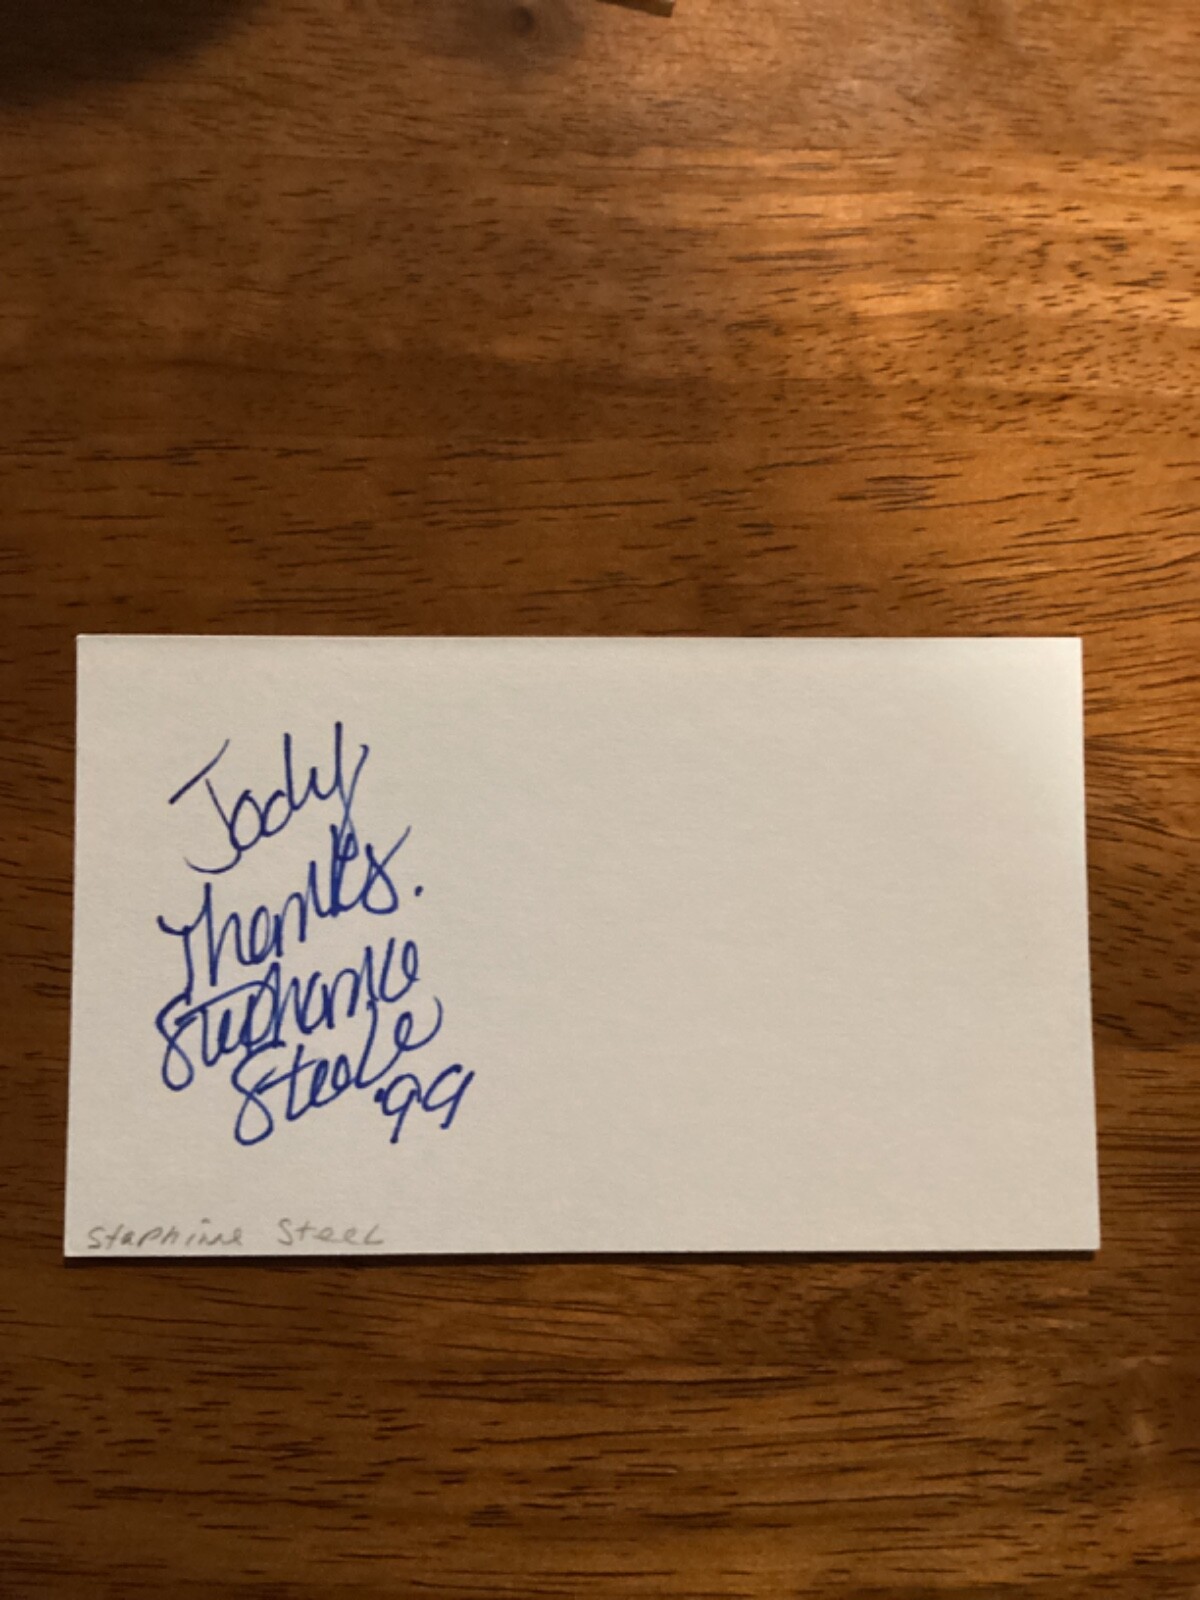 Jody
Thanks.
Stephanie
Steele
'99
Staphine Steel